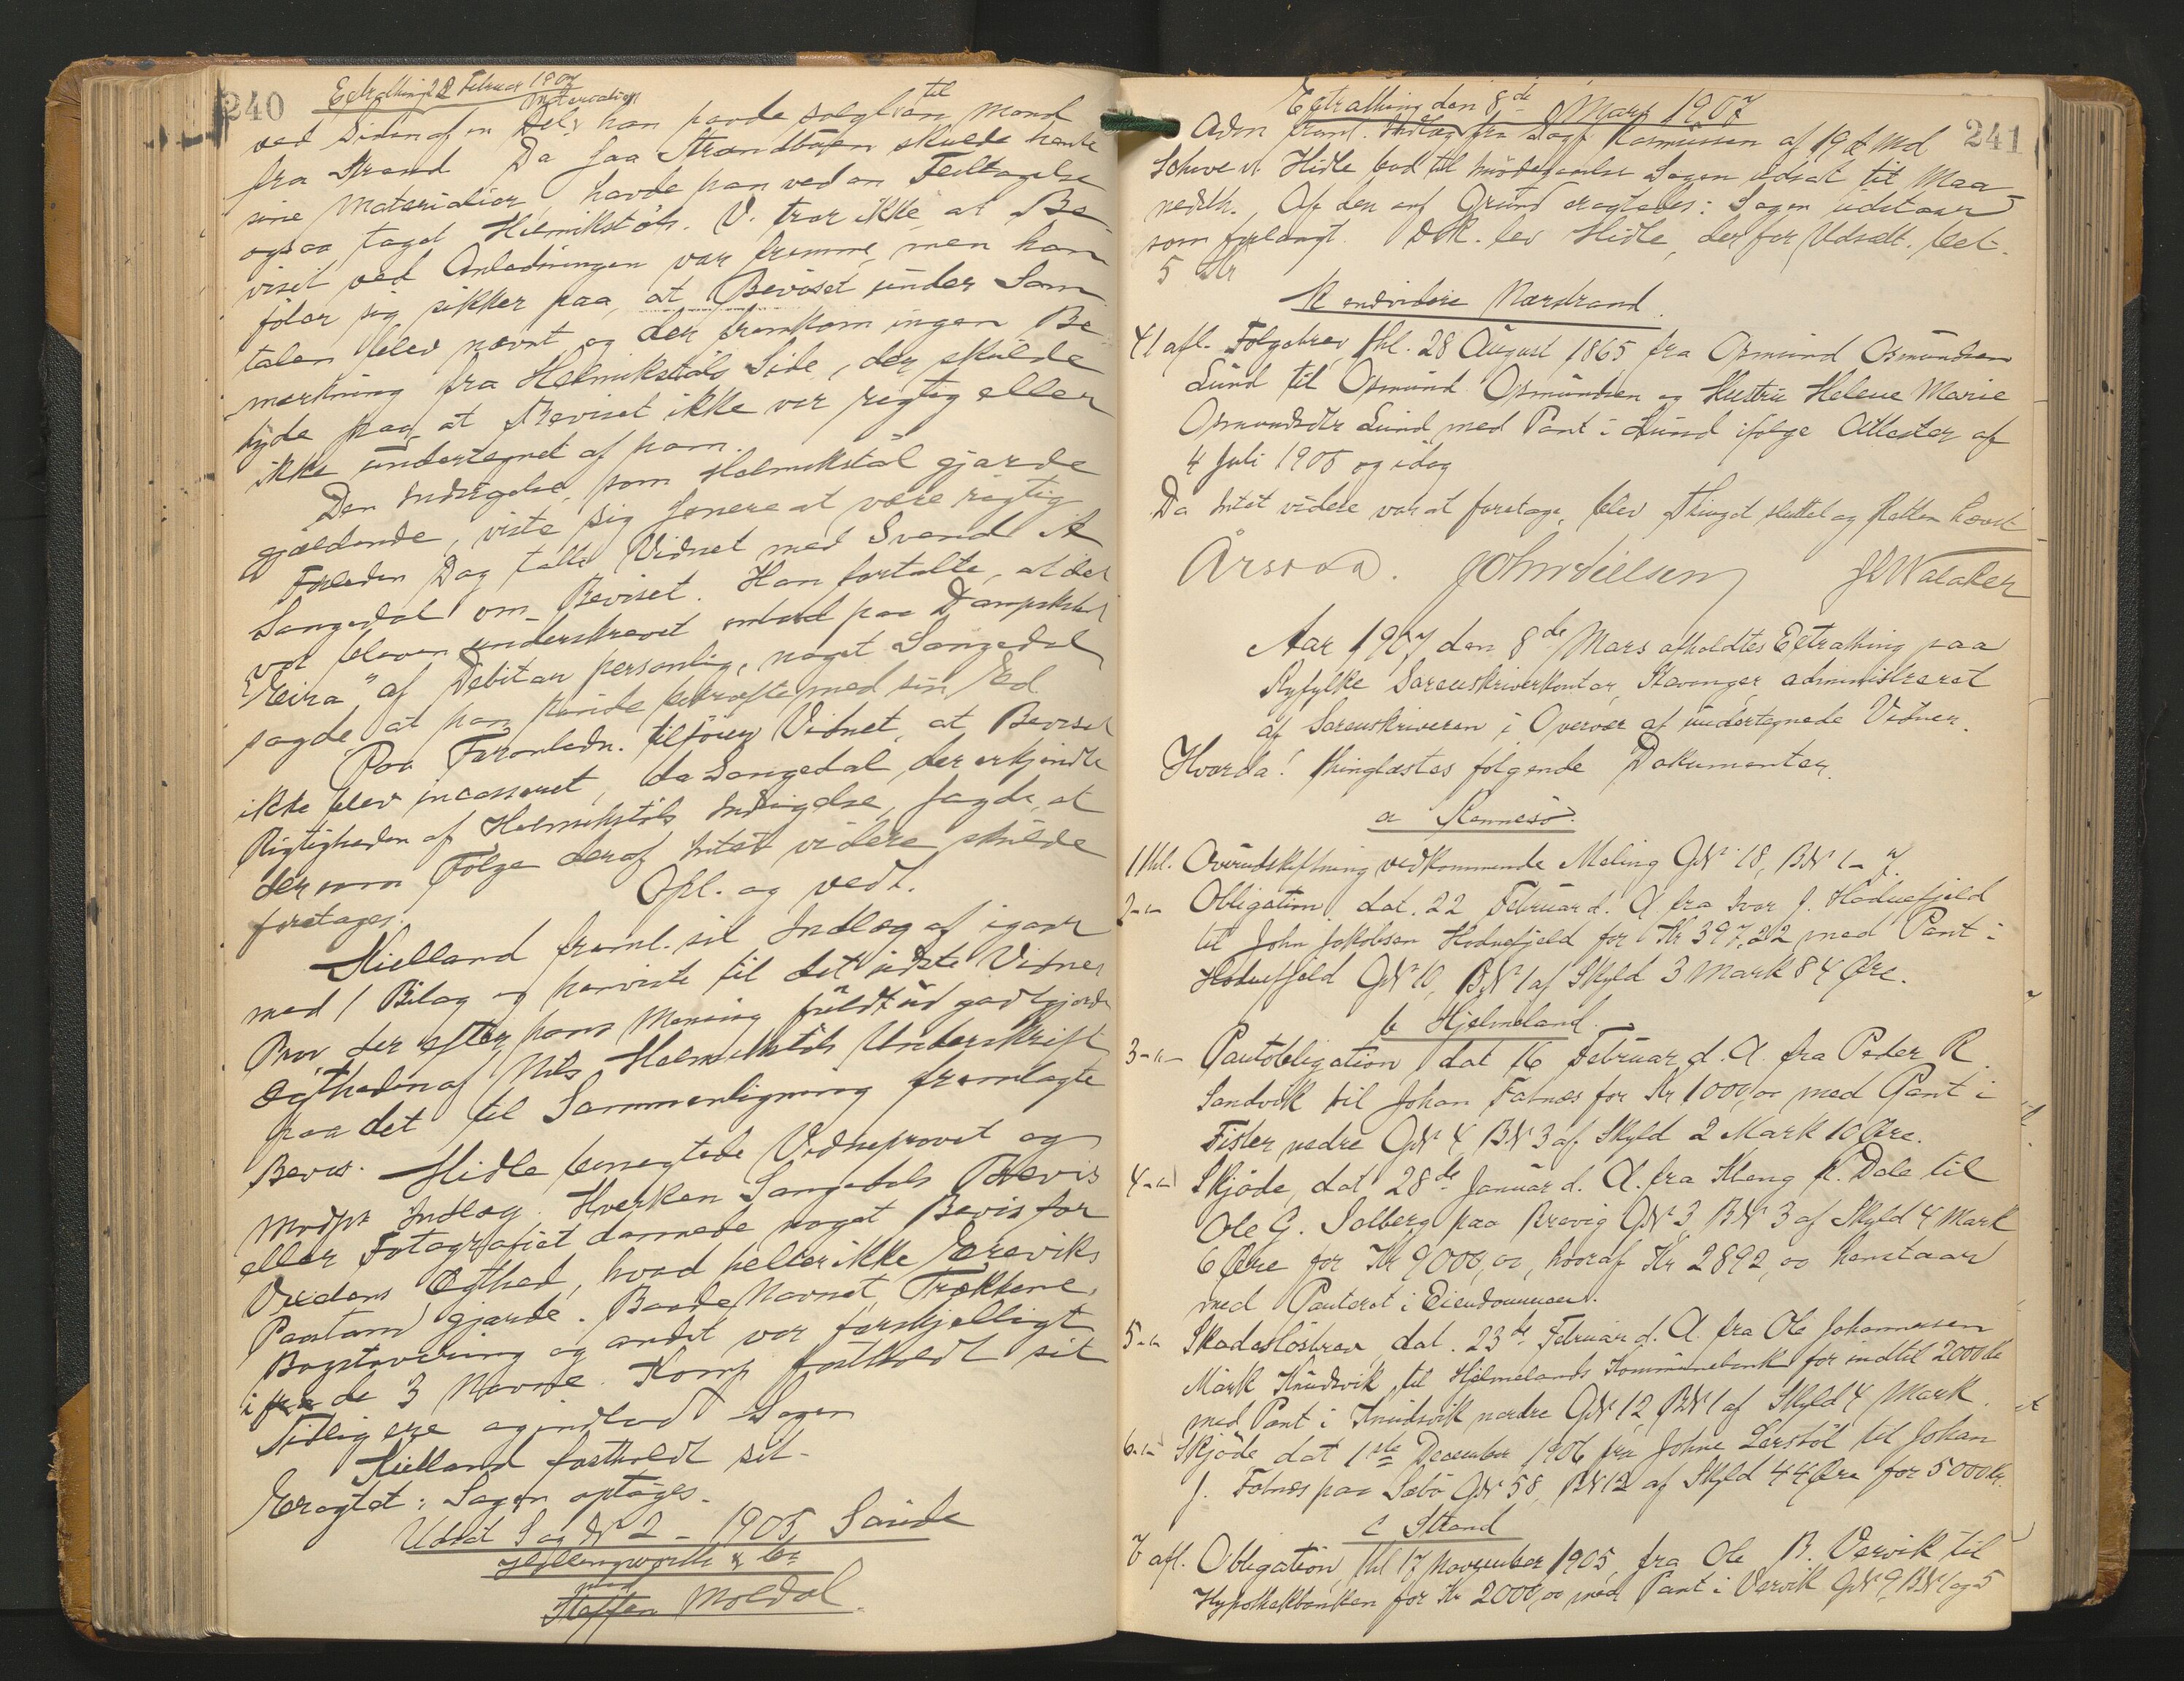 240
Extrathing 28 Februar 1907
ved Siden af en Del Materialier han havde solgt til en Mand
fra Strand. Da saa Strandbuen skulde hente
sine Materialier, havde han ved en Feiltagelse
ogsaa taget Helmikstøls. V. tror ikke, at Be-
viset ved Anledningen var fremme, men han
føler sig sikker paa, at Beviset under Sam
talen blev nævnt og der fremkom ingen Be
mærkning fra Helmikstøls Side, der skulde
tyde paa, at Beviset ikke var rigtig eller
ikke undertegnet af ham.
Den Indsigelse, som Helmikstøl gjorde
gjældende, viste sig senere at være rigtig
Forleden Dag talte Vidnet med Svend A
Sangedal om Beviset. Han fortalte, at det
var bleven underskrevet ombord paa Dampskibet
"Eira" af Debitor personlig, noget Sangedal
sagde, at han kunde bekræfte med sin Ed
Paa Foranledn. tilføier Vidnet, at Beviset
ikke blev incasseret, da Sangedal, der erkjendte
Rigtigheden af Helmikstøls Indsigelse, sagde, at
der som Følge deraf Intet videre skulde
foretages. Opl. og vedt.
Kielland freml. sit Indlæg af igaar
med 1 Bilag og henviste til det sidste Vidnes
Prov der efter hans Mening fuldt ud godtgjorde
Ægtheden af Nils Helmikstøls Underskrift
paa det til Sammenligning fremlagte
Bevis. Hidle benegtede Vidneprovet og
Modp's Indlæg. Hverken Sangedals Bevis
eller Fotografiet dannede noget Bevis for
Vexelens Ægthed, hvad heller ikke Ereviks
Paastand gjorde. Baade Navnet, Trækkene,
Bogstavering og andet var forskjelligt
i fra de 3 Navne. Komp fastholdt sit
Tidligere og indlod Sagen
Kielland fastholdt sit-
Eragtet: Sagen optages.
Udsat Sag No 2 - 1905, Sauda
Hollingworth & Co
mod
Staffen Moldal.
Extrathing den 8de Mars 1907
241
Aden freml. Indlæg fra Sagf Rasmussen af 19 d Md
Schive v. Hidle bad til Mødesamles Sagen udsat til Maa
nedsth. Af den anf Grund eragtedes: Sagen udstaar
som forlangt. Dok. lev Hidle, der for Udsætt. bet-
5 Kr
k endvidere Nærstrand.
41 afl. Folgebrev thl. 28 August 1865 fra Osmund Osmundsen
Lund til Osmund Osmundsen og Hustru Helene Marie
Osmundsdtr Lund med Pant i Lund ifølge Attester af
4 Juli 1905 og idag
Da Intet videre var at foretage, blev Thinget sluttet og Retten hævet
Årsvoa. John Nielsen J Walaker
Aar 1907 den 8de Mars afholdtes Extrathing paa
Ryfylke Sorenskriverkontor, Stavanger administreret
af Sorenskriveren i Overvær af undertegnede Vidner.
Hvorda! thinglæstes følgende Dokumenter.
a Rennesø.
1 thl. Overudskiftning vedkommende Meling GNo 18, BNo 1-7.
2-"- Obligation dat. 22 Februar d. A fra Ivar J. Hodnefjeld
til John Jakobsen Hodnefjeld for Kr 397,22 med Pant i
Hodnefjeld GNo 10, BNo 1 af Skyld 3 Mark 84 Øre.
b Hjelmeland.
3-"- Pantobligation dat 16 Februar d. A. fra Peder R
Sandvik til Johan Fatnæs for Kr 1000,00 med Pant i
Fister nedre GNo 4 BNo 3 af Skyld 2 Mark 10 Øre.
4-"- Skjøde, dat 28de Januar d. A. fra Kleng K. Dale til
Ole G. Solberg paa Brevig GNo 3, BNo 3 af Skyld 4 Mark
6 Øre for Kr 9000,00, hvoraf Kr 2892,00 henstaar
med Panteret i Eiendommen.
5-"- Skadesløsbrev dat. 23de Februar d. A. fra Ole Johannesen
Mørk Knudsvik til Hjelmelands Kommunebank for indtil 2000 kr
med Pant i Knudsvik nordre GNo 12 BNo 1 af Skyld 4 Mark.
6-"- Skjøde dat 1ste December 1906 fra Johne Lerstøl til Johan
J. Fatnæs paa Sæbø GNo 58, BNo 12 af Skyld 44 Øre for 5000 Kr.
c Strand
7 afl. Obligation, thl 17 November 1905, fra Ole B. Vervik til
Hypothekbanken for Kr 2000,00 med Pant i Vervik GNo 9, BNo 1 og 5